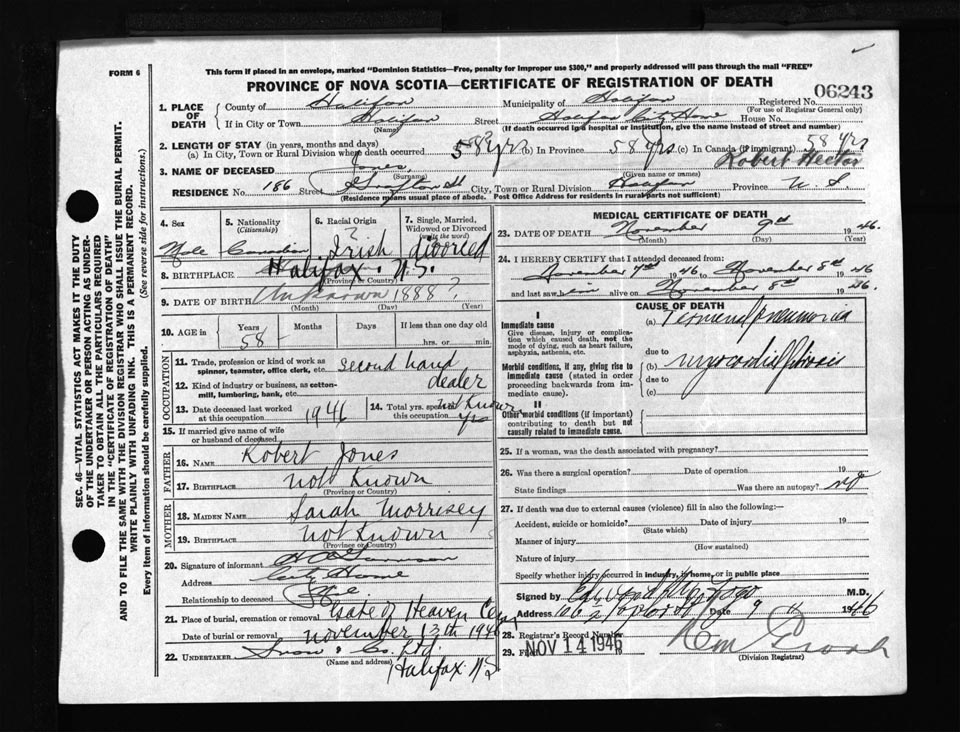 FORM 6
This form if placed in an envelope, marked "Dominion Statistics—Free, penalty for improper use $300," and properly addressed will pass through the mail "FREE"
PROVINCE OF NOVA SCOTIA—CERTIFICATE OF REGISTRATION OF DEATH
06243
1. PLACE OF DEATH
County of Halifax Municipality of Halifax Registered No.
(For use of Registrar General only)
If in City or Town Halifax Street Halifax City Home House No.
(Name) (If death occurred in a hospital or institution, give the name instead of street and number)
2. LENGTH OF STAY (in years, months and days)
(a) In City, Town or Rural Division where death occurred 58 yrs (b) In Province 58 yrs (c) In Canada (if immigrant) 58 yrs
3. NAME OF DECEASED Jones Robert Hector
(Surname) (Given name or names)
RESIDENCE No. 186 Street Grafton St City, Town or Rural Division Halifax Province N.S.
(Residence means usual place of abode. Post Office Address for residents in rural parts not sufficient)
4. Sex Male
5. Nationality (Citizenship) Canadian
6. Racial Origin ? Irish
7. Single, Married, Widowed or Divorced (write the word) divorced
8. BIRTHPLACE Halifax. N.S.
(Province or Country)
9. DATE OF BIRTH Unknown 1888?
(Month) (Day) (Year)
10. AGE in Years 58 Months Days If less than one day
hrs. or min.
OCCUPATION
11. Trade, profession or kind of work as spinner, teamster, office clerk, etc. second hand
12. Kind of industry or business, as cotton-mill, lumbering, bank, etc. dealer
13. Date deceased last worked at this occupation 1946
14. Total yrs. spent at this occupation Not Known yrs
15. If married give name of wife or husband of deceased
FATHER
16. NAME Robert Jones
17. BIRTHPLACE Not Known
(Province or Country)
MOTHER
18. MAIDEN NAME Sarah Morrisey
19. BIRTHPLACE Not Known
(Province or Country)
20. Signature of informant
Address City Home
Relationship to deceased
21. Place of burial, cremation or removal Gate of Heaven Cem
Date of burial or removal November 13th 1946
22. UNDERTAKER Snow & Co. Ltd.
(Name and address) Halifax N.S
MEDICAL CERTIFICATE OF DEATH
23. DATE OF DEATH November 9th 1946.
(Month) (Day) (Year)
24. I HEREBY CERTIFY that I attended deceased from:
November 7th 1946 to November 8th 1946
and last saw him alive on November 8th 1946.
CAUSE OF DEATH
I
Immediate cause
Give disease, injury or complication which caused death, not the mode of dying, such as heart failure, asphyxia, asthenia, etc.
(a) Terminal pneumonia
due to
Morbid conditions, if any, giving rise to immediate cause (stated in order proceeding backwards from immediate cause).
(b) myocardial fibrosis
due to
(c)
II
Other morbid conditions (if important) contributing to death but not causally related to immediate cause.
25. If a woman, was the death associated with pregnancy?
26. Was there a surgical operation? Date of operation 19
State findings Was there an autopsy? no
27. If death was due to external causes (violence) fill in also the following:—
Accident, suicide or homicide? Date of injury 19
(State which)
Manner of injury
(How sustained)
Nature of injury
Specify whether injury occurred in industry, home, or in public place
Signed by M.D.
Address Date 9 11 1946
28. Registrar's Record Number
29. Filed NOV 14 1946 19
(Division Registrar)
SEC. 46—VITAL STATISTICS ACT MAKES IT THE DUTY
OF THE UNDERTAKER OR PERSON ACTING AS UNDERTAKER TO OBTAIN ALL THE PARTICULARS REQUIRED
IN THE "CERTIFICATE OF REGISTRATION OF DEATH"
AND TO FILE THE SAME WITH THE DIVISION REGISTRAR WHO SHALL ISSUE THE BURIAL PERMIT.
WRITE PLAINLY WITH UNFADING INK. THIS IS A PERMANENT RECORD.
Every item of information should be carefully supplied. (See reverse side for instructions.)